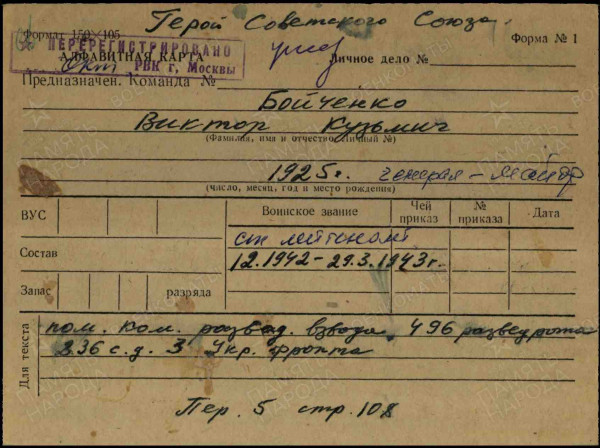 Герой Советского Союза
Формат 150×105
Форма № 1
ПЕРЕРЕГИСТРИРОВАНО
АЛФАВИТНАЯ КАРТА
Личное дело №
Окт РВК г. Москвы
Предназначен. Команда №
Бойченко
Виктор Кузьмич
(Фамилия, имя и отчество, личный №)
1925г. генерал-майор
(число, месяц, год и место рождения)
ВУС
Воинское звание
Чей приказ
№ приказа
Дата
ст лейтенант
Состав
12.1942-29.3.1943г.
Запас
разряда
Для текста
пом. ком. развед. взвода 496 разведрота
236 с.д. 3 Укр. фронта
Пер. 5 стр. 108
ПАМЯТЬ НАРОДА
ВОЕНКОМАТЫ